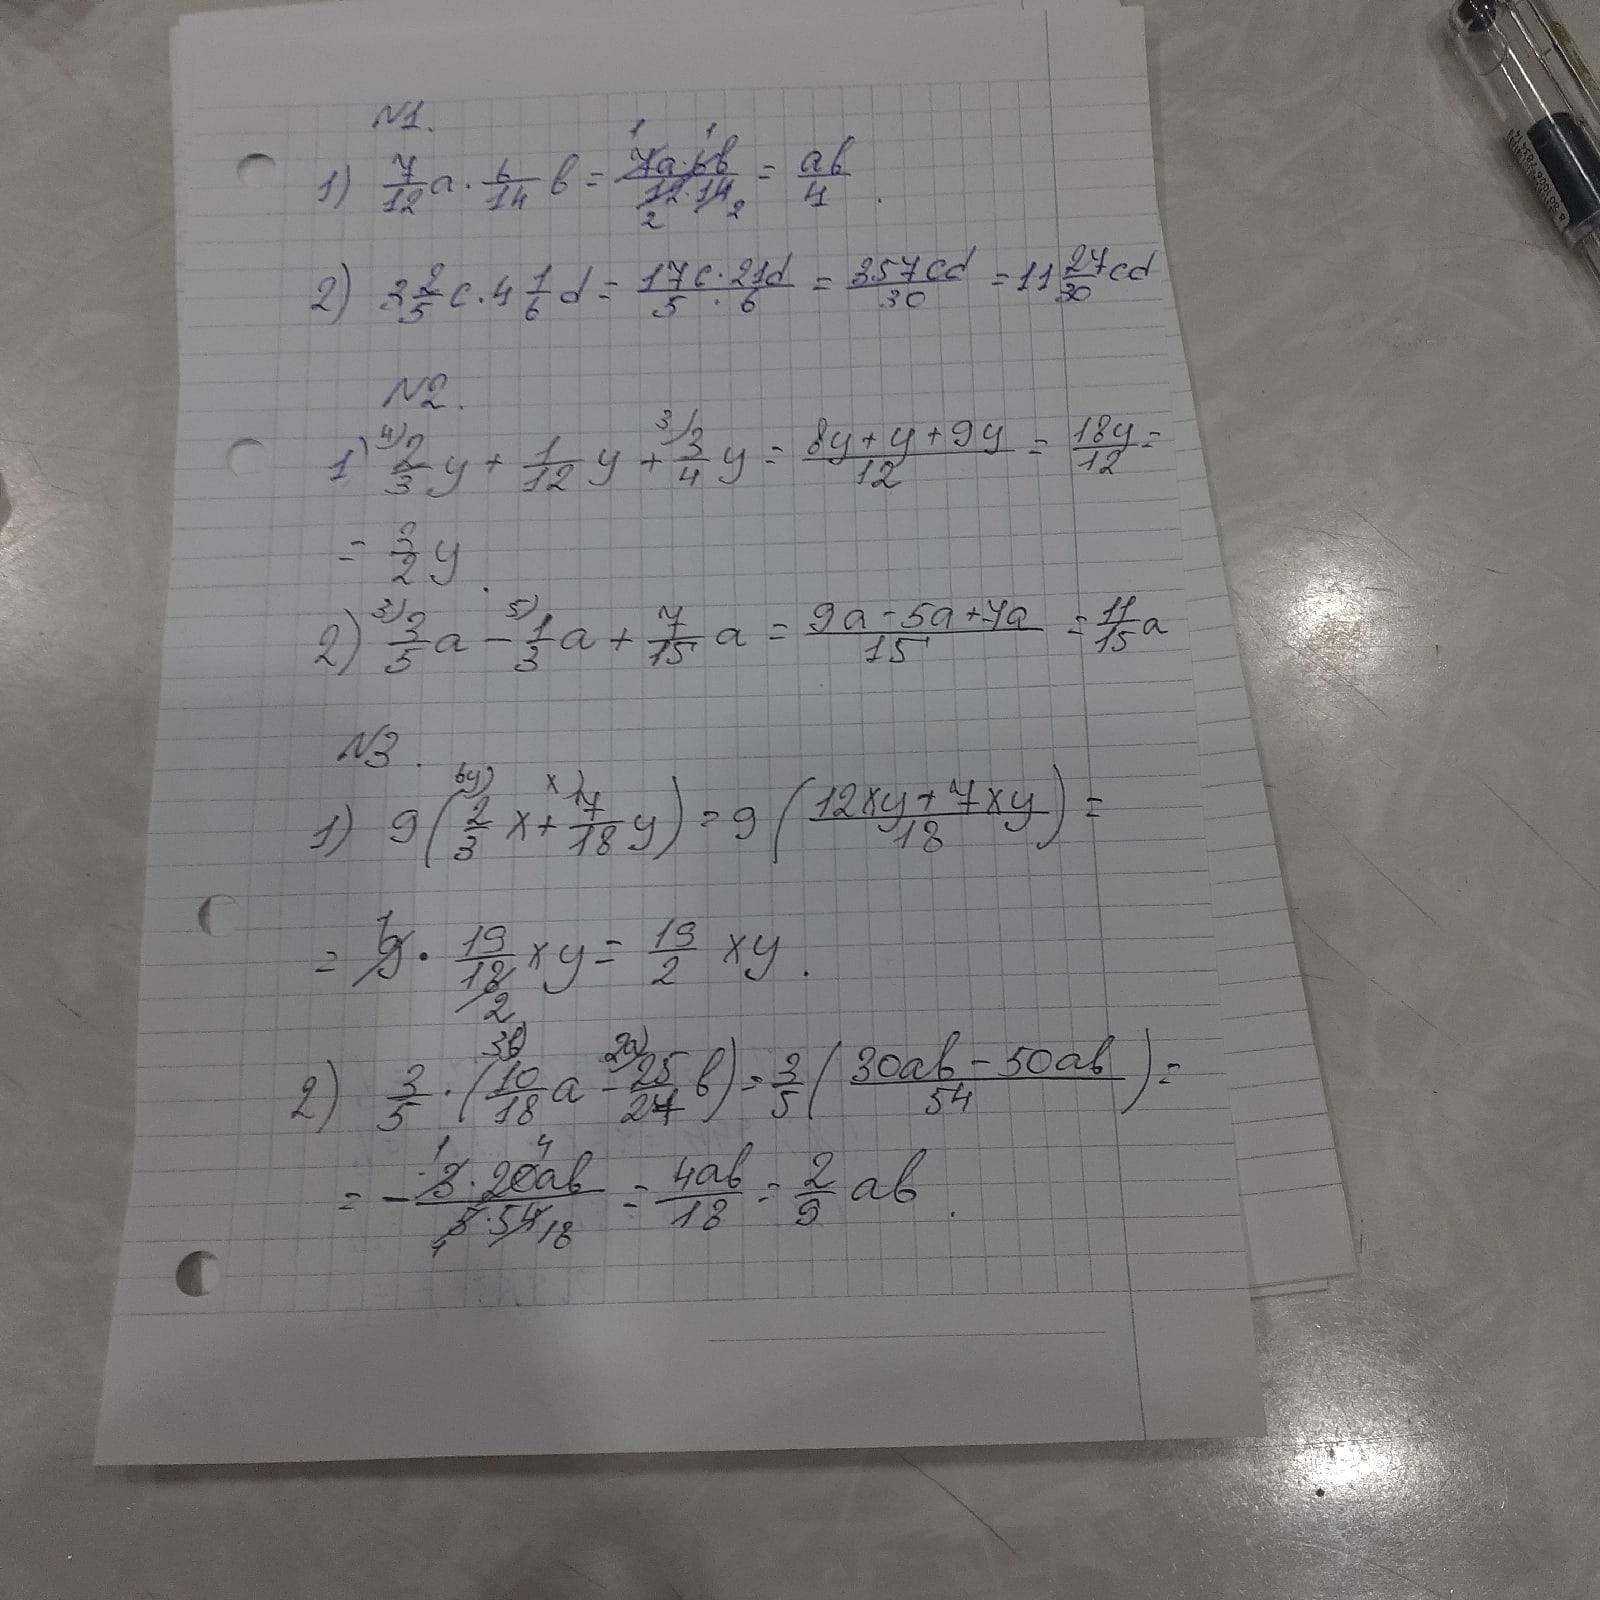 N1.
1) 7/12 a · 6/14 b = 7a·6b/12·14 = ab/4 .
2) 3 2/5 c · 4 1/6 d = 17c·21d/5·6 = 357cd/30 = 11 27/30 cd
N2.
1) 2/3 y + 1/12 y + 3/4 y = 8y+y+9y/12 = 18y/12 =
= 3/2 y .
2) 3/5 a - 1/3 a + 7/15 a = 9a-5a+7a/15 = 11/15 a
N3.
1) 9 ( 2/3 x + 7/18 y ) = 9 ( 12xy+7xy/18 ) =
= 9 · 19/18 xy = 19/2 xy .
2) 3/5 · ( 10/18 a - 25/27 b ) = 3/5 ( 30ab-50ab/54 ) =
= - 3·20ab/5·54 = 4ab/18 = 2/9 ab .